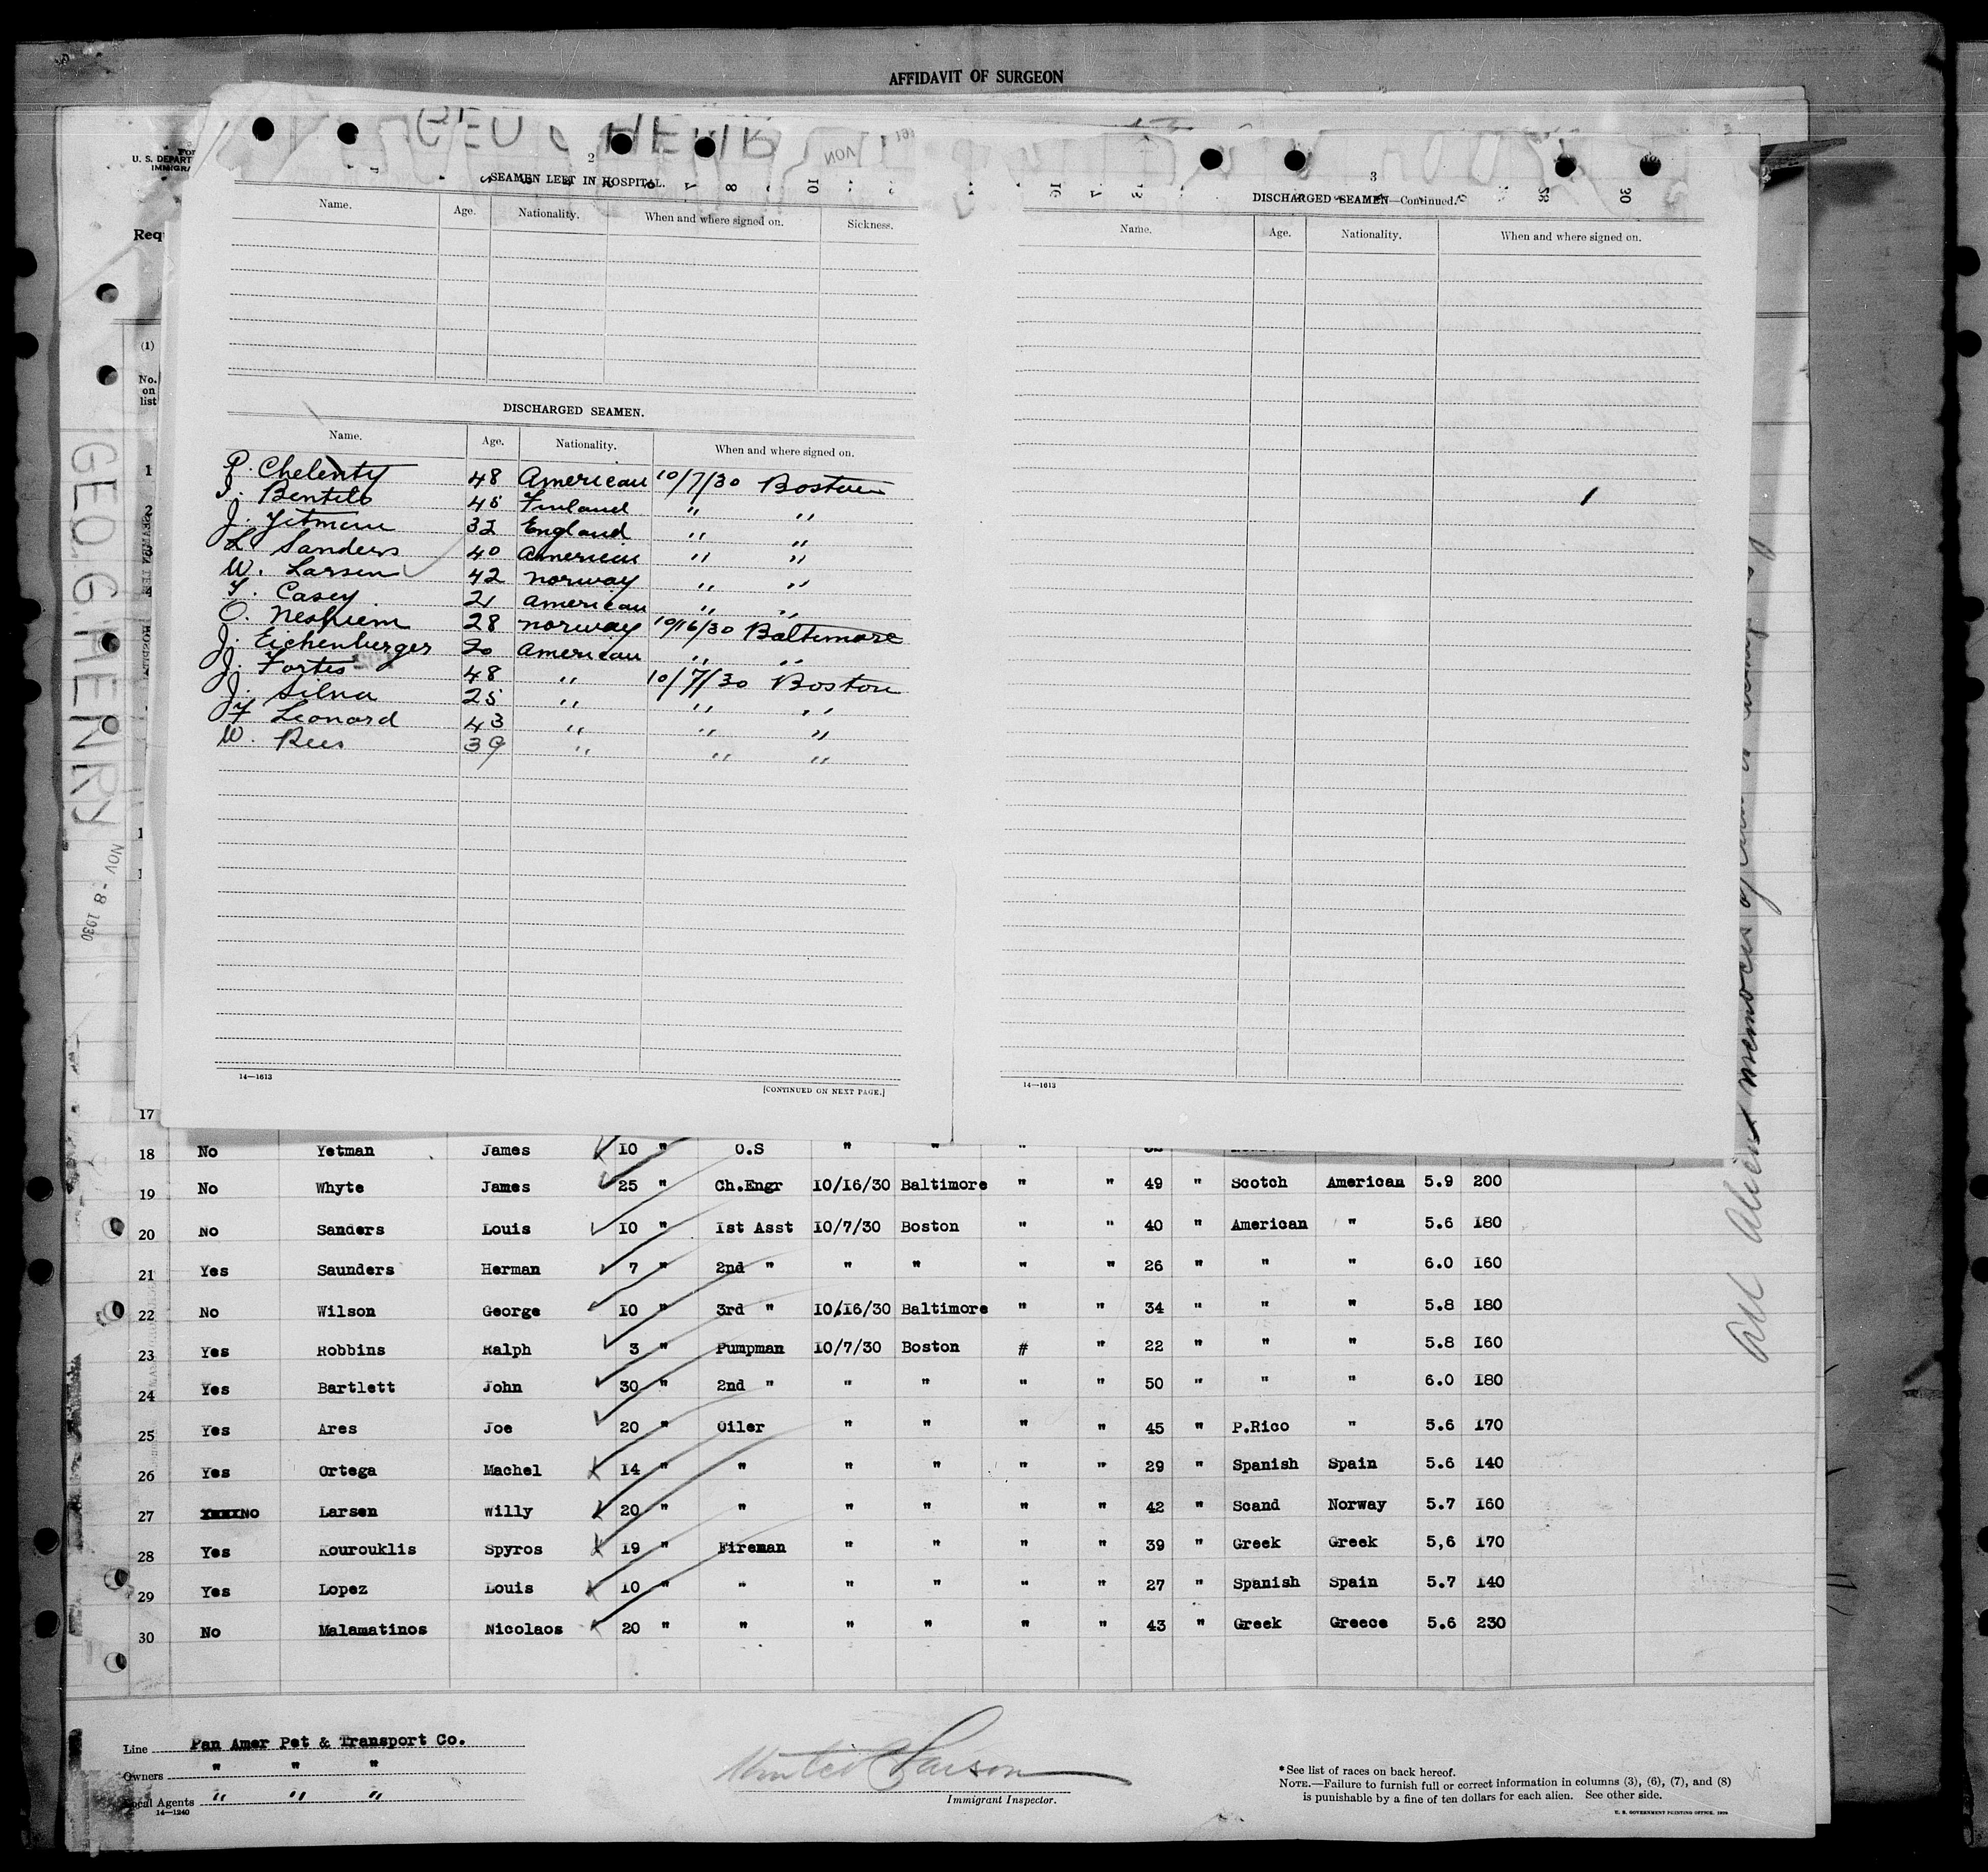 AFFIDAVIT OF SURGEON
U. S. DEPART
IMMIGRA
Req
(1)
No. on list
GEO. G. HENRY
NOV -8 1930
2
SEAMEN LEFT IN HOSPITAL.
Name. Age. Nationality. When and where signed on. Sickness.
DISCHARGED SEAMEN.
Name. Age. Nationality. When and where signed on.
P. Chelenty 48 American 10/7/30 Boston
Bentils 45 Finland " "
J. Yetman 32 England " "
L. Sanders 40 American " "
W. Larsen 42 norway " "
Casey 21 american " "
O. Neshiem 28 norway 10/16/30 Baltimore
J. Eichenberger 20 american " "
J. Fortes 48 " 10/7/30 Boston
J. Silva 25 " " "
Leonard 43 " " "
W. Rees 39 " " "
14—1613
[CONTINUED ON NEXT PAGE.]
3
DISCHARGED SEAMEN—Continued.
Name. Age. Nationality. When and where signed on.
14—1613
17
18 No Yetman James 10 " O.S " " "
19 No Whyte James 25 " Ch.Engr 10/16/30 Baltimore " " 49 " Scotch American 5.9 200
20 No Sanders Louis 10 " 1st Asst 10/7/30 Boston " " 40 " American " 5.6 180
21 Yes Saunders Herman 7 " 2nd " " " " " 26 " " " 6.0 160
22 No Wilson George 10 " 3rd " 10/16/30 Baltimore " " 34 " " " 5.8 180
23 Yes Robbins Ralph 3 " Pumpman 10/7/30 Boston # " 22 " " " 5.8 160
24 Yes Bartlett John 30 " 2nd " " " " " 50 " " " 6.0 180
25 Yes Ares Joe 20 " Oiler " " " " 45 " P.Rico " 5.6 170
26 Yes Ortega Machel 14 " " " " " " 29 " Spanish Spain 5.6 140
27 No Larsen Willy 20 " " " " " " 42 " Scand Norway 5.7 160
28 Yes Kourouklis Spyros 19 " Fireman " " " " 39 " Greek Greek 5,6 170
29 Yes Lopez Louis 10 " " " " " " 27 " Spanish Spain 5.7 140
30 No Malamatinos Nicolaos 20 " " " " " " 43 " Greek Greece 5.6 230
Line Pan Amer Pet & Transport Co.
Owners " " "
Local Agents " " "
14—1240
Immigrant Inspector.
* See list of races on back hereof.
NOTE.—Failure to furnish full or correct information in columns (3), (6), (7), and (8)
is punishable by a fine of ten dollars for each alien. See other side.
U. S. GOVERNMENT PRINTING OFFICE
All Aliens